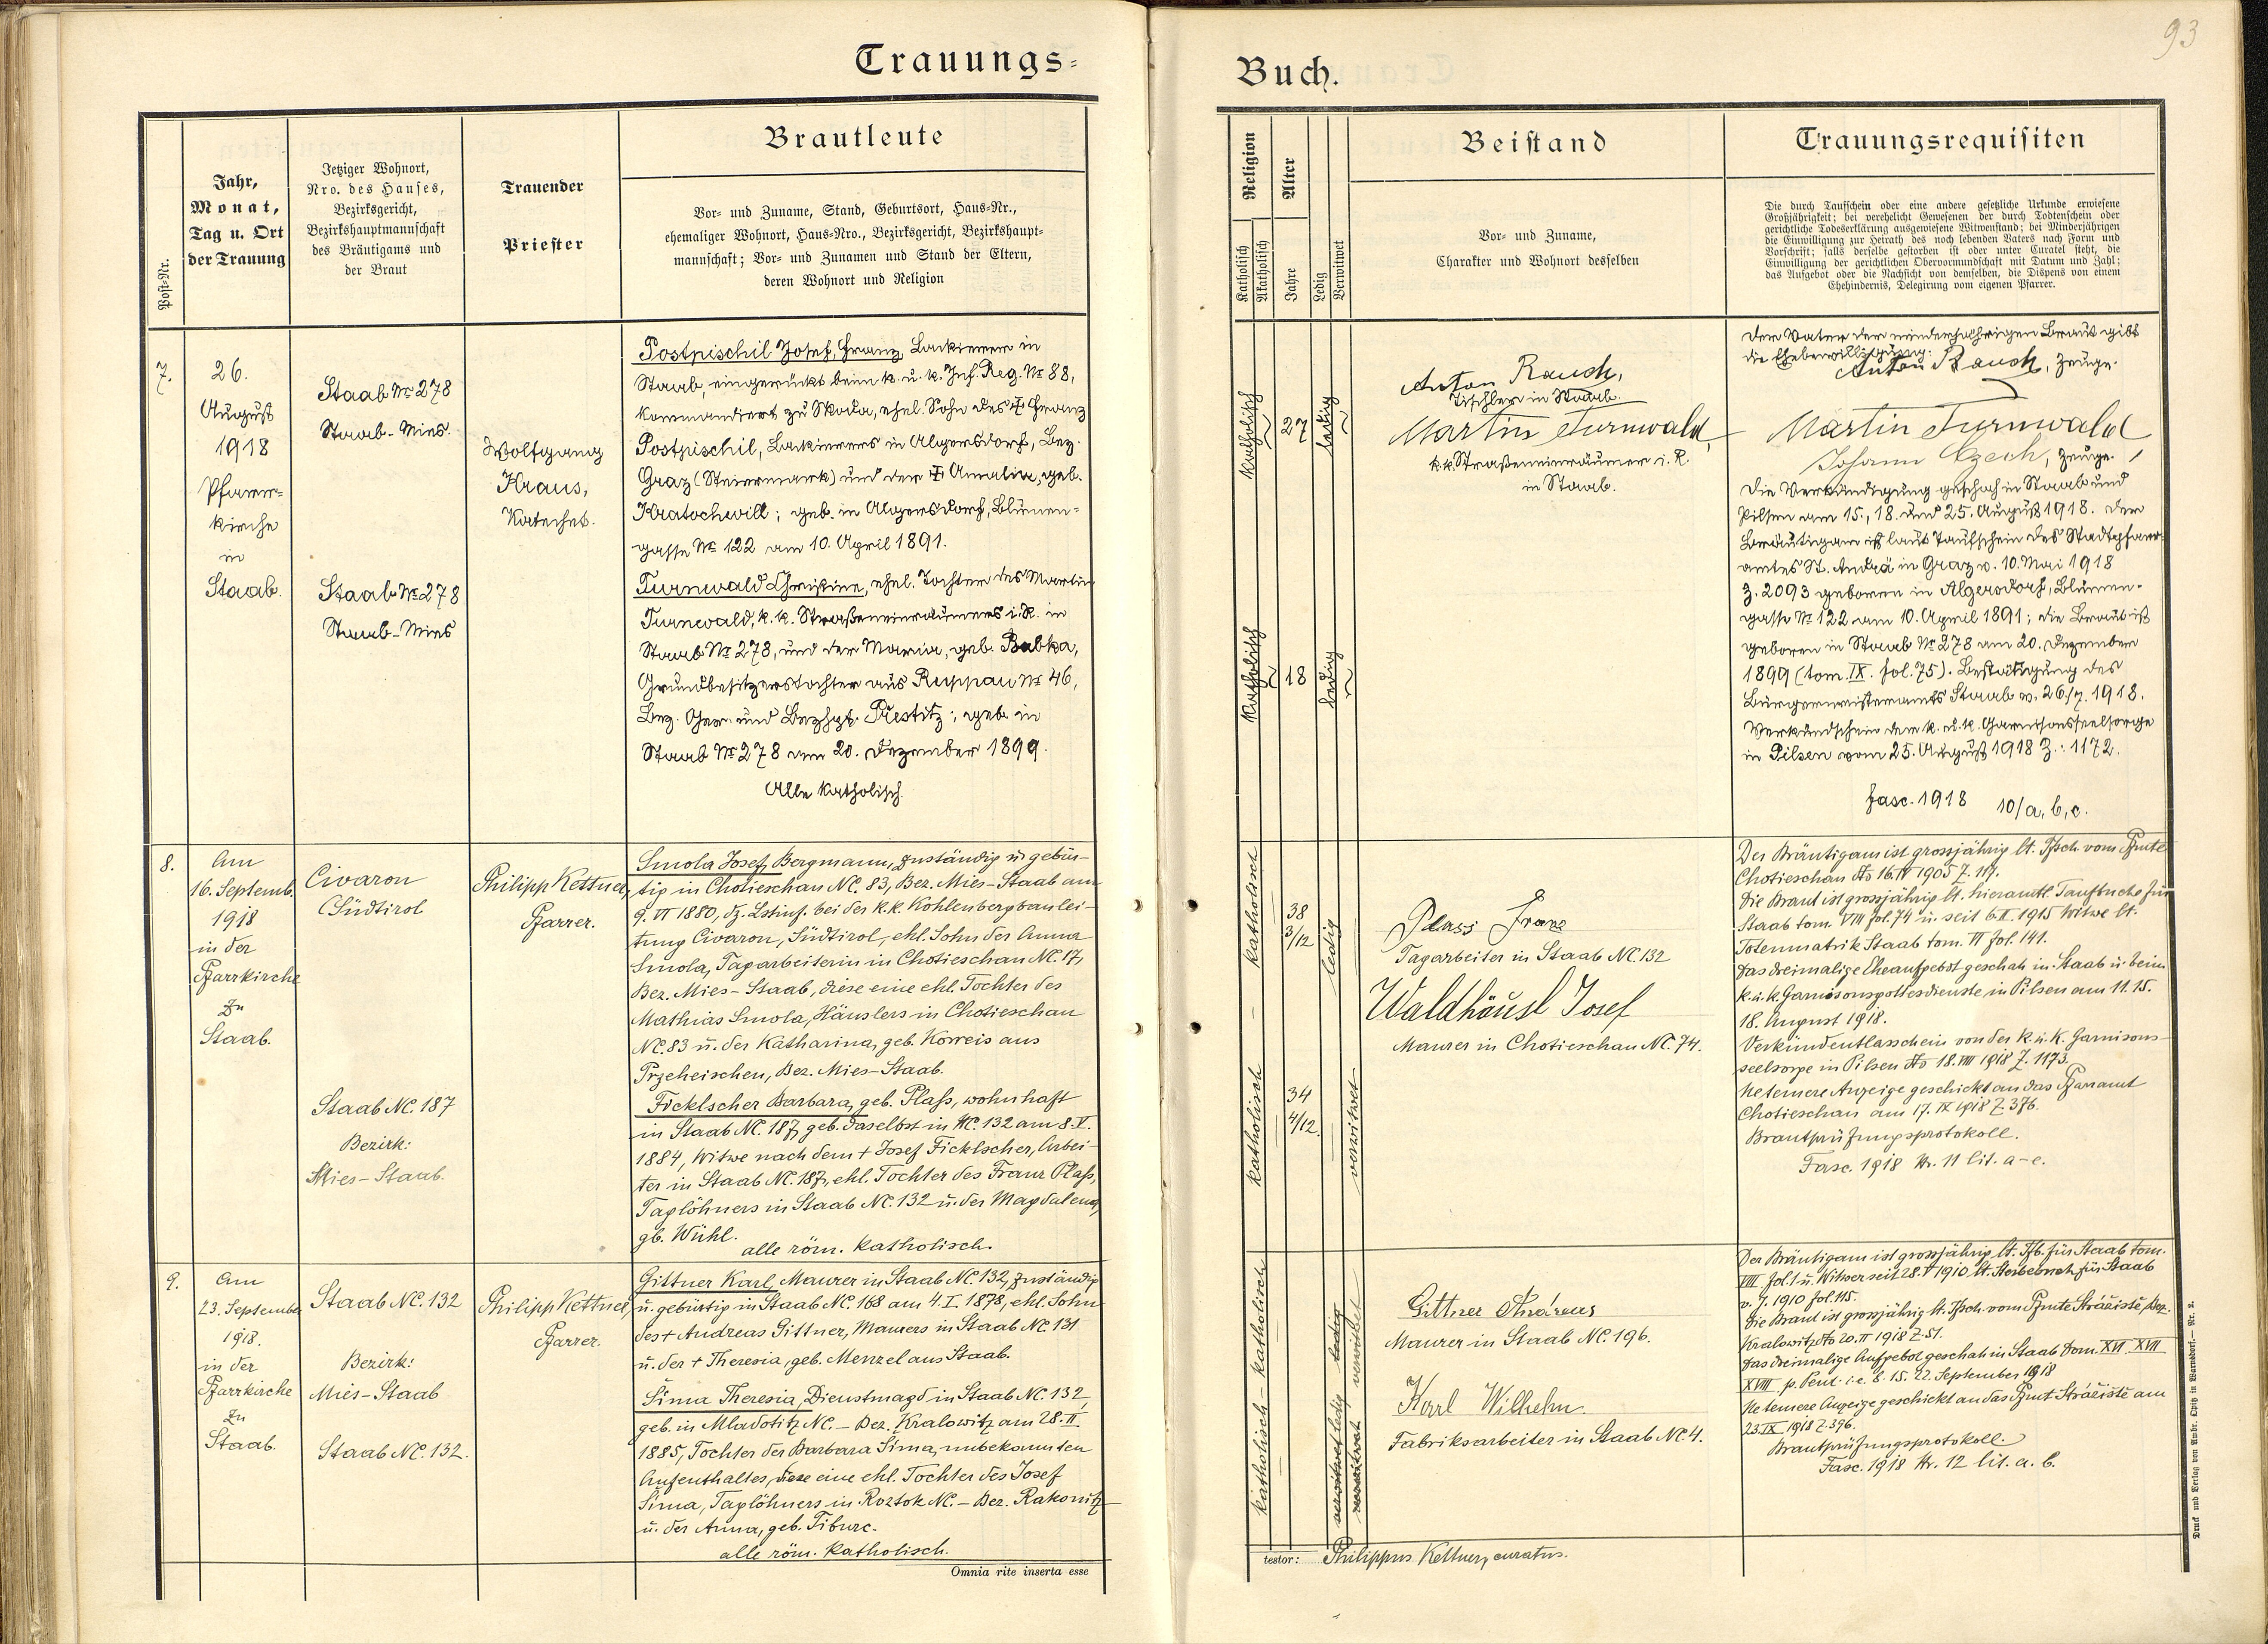 93
Trauungs=
Buch.
Post-Nr.
Jahr,
Monat,
Tag u. Ort
der Trauung
Jetziger Wohnort,
Nro. des Hauses,
Bezirksgericht,
Bezirkshauptmannschaft
des Bräutigams und
der Braut
Trauender
Priester
Brautleute
Vor- und Zuname, Stand, Geburtsort, Haus-Nr.,
ehemaliger Wohnort, Haus-Nro., Bezirksgericht, Bezirkshaupt-
mannschaft; Vor- und Zunamen und Stand der Eltern,
deren Wohnort und Religion
Religion
Katholisch
Akatholisch
Alter
Jahre
Ledig
Verwitwet
Beistand
Vor- und Zuname,
Charakter und Wohnort desselben
Trauungsrequisiten
Die durch Taufschein oder eine andere gesetzliche Urkunde erwiesene
Großjährigkeit; bei verehelicht Gewesenen der durch Todtenschein oder
gerichtliche Todeserklärung ausgewiesene Witwenstand; bei Minderjährigen
die Einwilligung zur Heirath des noch lebenden Vaters nach Form und
Vorschrift; falls derselbe gestorben ist oder unter Curatel steht, die
Einwilligung der gerichtlichen Obervormundschaft mit Datum und Zahl;
das Aufgebot oder die Nachsicht von demselben, die Dispens von einem
Ehehindernis, Delegirung vom eigenen Pfarrer.
7.
26.
August
1918
Pfarr=
kirche
in
Staab.
Staab Nr 278
Staab-Mies.
Staab Nr 278
Staab-Mies
Wolfgang
Kraus,
Katechet.
Postpischil Josef, Franz, Lackierer in
Staab, eingerückt beim k. u. k. Inf. Reg. Nr 88,
kommandiert zu Skoda, ehel. Sohn des ‡ Franz
Postpischil, Lackierers in Algersdorf, Bez.
Graz (Steiermark) und der ‡ Amalia, geb.
Kratochwill; geb. in Algersdorf, Blumen=
gasse Nr 122 am 10. April 1891.
Turnwald Christine, ehel. Tochter des Martin
Turnwald, k. k. Straßeneinräumers i. R. in
Staab Nr 278, und der Maria, geb. Babka,
Grundbesitzerstochter aus Ruppau Nr 46,
Bez. Ger. und Bezhpt. Přestitz; geb. in
Staab Nr 278 am 20. Dezember 1899.
Alle katholisch.
katholisch
27
ledig
katholisch
18
ledig
Anton Rauch,
Tischler in Staab.
Martin Turnwald
k. k. Straßeneinräumer i. R.
in Staab.
Der Vater der minderjährigen Braut gibt
die Ehebewilligung:
Anton Rauch, Zeuge.
Martin Turnwald
Johann Czech, Zeuge.
Die Verkündigung geschah in Staab und
Pilsen am 15., 18. und 25. August 1918. Der
Bräutigam ist laut Taufschein des Stadtpfarr=
amtes St. Andrä in Graz v. 10. Mai 1918
Z. 2093 geboren in Algersdorf, Blumen-
gasse Nr 122 am 10. April 1891; die Braut ist
geboren in Staab Nr 278 am 20. Dezember
1899 (tom. IX. fol. 75). Bestätigung des
Bürgermeisteramts Staab v. 26./7. 1918.
Verkündschein der k. u. k. Garnisonsseelsorge
in Pilsen vom 25. August 1918 Z.: 1172.
fasc. 1918 10/a, b, c.
8.
Am
16. Septemb.
1918
in der
Pfarrkirche
zu
Staab.
Civaron
Südtirol
Staab NC. 187
Bezirk:
Mies-Staab.
Philipp Kettner,
Pfarrer.
Smola Josef, Bergmann, zuständig u. gebür-
tig in Chotieschau NC. 83, Bez. Mies-Staab am
9. VI 1880, dz. Lstinf. bei der k. k. Kohlenbergbaulei-
tung Civaron, Südtirol, ehl. Sohn der Anna
Smola, Tagarbeiterin in Chotieschau NC. 17,
Bez. Mies-Staab, diese eine ehl. Tochter des
Mathias Smola, Häuslers in Chotieschau
NC. 83 u. der Katharina, geb. Korreis aus
Przeheischen, Bez. Mies-Staab.
Ficklscher Barbara, geb. Plaß, wohnhaft
in Staab NC. 187, geb. daselbst in NC. 132 am 8. V.
1884, Witwe nach dem + Josef Ficklscher, Arbei-
ter in Staab NC. 187, ehl. Tochter des Franz Plaß,
Taglöhners in Staab NC. 132 u. der Magdalena,
gb. Wühl.
alle röm. katholisch.
katholisch
38
3/12
ledig
katholisch
34
4/12.
verwitwet
Plass Franz
Tagarbeiter in Staab NC. 132
Waldhäusl Josef
Maurer in Chotieschau NC. 74.
Der Bräutigam ist grossjährig lt. Tfsch. vom Pfmte
Chotieschau dto 16. IV 1905 Z. 117.
Die Braut ist grossjährig lt. hieramtl. Taufbuche für
Staab tom. VIII fol. 74 u. seit 6. II. 1915 Witwe lt.
Totenmatrik Staab tom. VI fol. 141.
Das dreimalige Eheaufgebot geschah in Staab u. beim
k. u. k. Garnisonsgottesdienste in Pilsen am 11. 15.
18. August 1918.
Verkündentlasschein von der k. u. k. Garnisons-
seelsorge in Pilsen dto 18. VIII 1918 Z. 1173.
Ne temere Anzeige geschickt an das Pfarramt
Chotieschau am 17. IX 1918 Z. 376.
Brautprüfungsprotokoll.
Fasc. 1918 Nr. 11 lit. a-e.
9.
Am
23. September
1918.
in der
Pfarrkirche
zu
Staab.
Staab NC. 132
Bezirk:
Mies-Staab
Staab NC. 132.
Philipp Kettner,
Pfarrer.
Gittner Karl, Maurer in Staab NC. 132, zuständig
u. gebürtig in Staab NC. 168 am 4. I. 1878, ehl. Sohn
des + Andreas Gittner, Maurers in Staab NC. 131
u. der + Theresia, geb. Menzel aus Staab.
Šima Theresia, Dienstmagd in Staab NC. 132,
geb. in Mladotitz NC. – Bez. Kralowitz am 28. II.
1885, Tochter der Barbara Šima, unbekannten
Aufenthaltes, diese eine ehl. Tochter des Josef
Šima, Taglöhners in Roztok NC. – Bez. Rakonitz
u. der Anna, geb. Tiburc.
alle röm. katholisch.
katholisch - katholisch
ledig
verwitwet
Gittner Andreas
Maurer in Staab NC. 196.
Karl Wilhelm.
Fabriksarbeiter in Staab NC. 4.
Der Bräutigam ist grossjährig lt. Tfb. für Staab tom.
VIII fol. 1 u. Witwer seit 28. V 1910 lt. Sterbebuch für Staab
v. J. 1910 fol. 115.
Die Braut ist grossjährig lt. Tfsch. vom Pfmte Stražiště, Bez.
Kralowitz dto 20. II 1918 Z. 51.
Das dreimalige Aufgebot geschah in Staab Dom. XVI XVII
XVIII p. Pent. i. e. 8. 15. 22. September 1918
Ne temere Anzeige geschickt an das Pfmt Stražiště am
23. IX 1918 Z. 396.
Brautprüfungsprotokoll.
Fasc. 1918 Nr. 12 lit. a. b.
Omnia rite inserta esse
testor: Philippus Kettner, curatus.
Druck und Verlag von Ambr. Opitz in Warnsdorf. — Nr. 2.